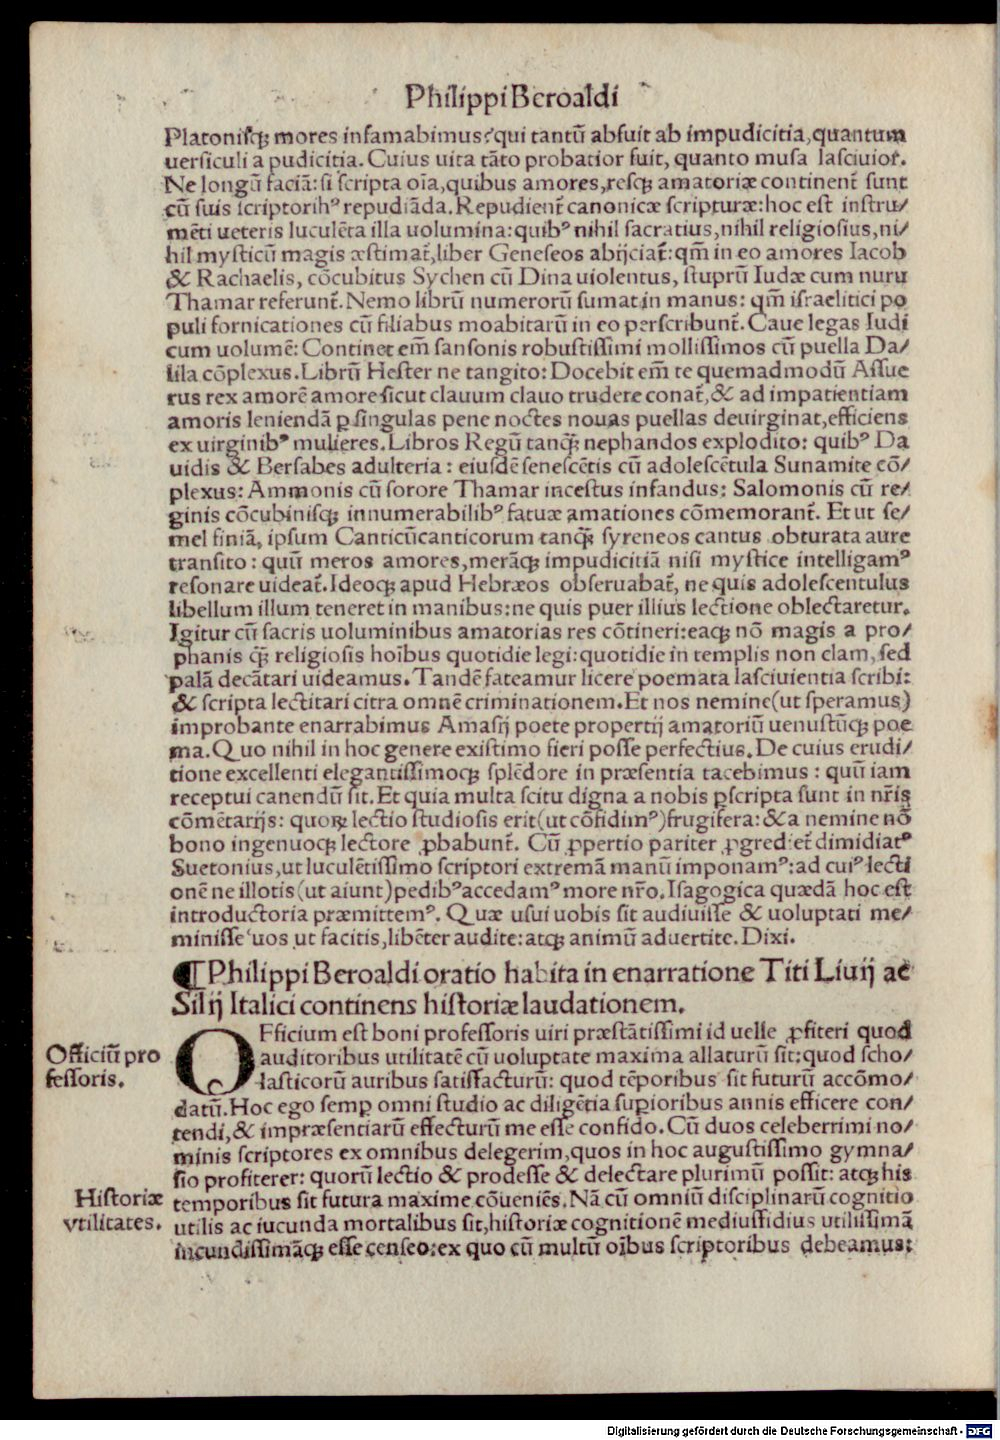 Philippi Beroaldi
Platonisq; mores infamabimus? qui tantũ abfuit ab impudicitia, quantum
uersiculi a pudicitia. Cuius uita tãto probatior fuit, quanto musa lasciuior.
Ne longũ faciã: si scripta oĩa, quibus amores, resq; amatoriæ continent̃ sunt
cũ suis scriptorib⁹ repudiãda. Repudient̃ canonicæ scripturæ: hoc est instru/
mẽti ueteris luculẽta illa uolumina: quib⁹ nihil sacratius, nihil religiosius, ni/
hil mysticũ magis æstimat̃, liber Geneseos abijciat̃: qm̃ in eo amores Iacob
& Rachaelis, cõcubitus Sychen cũ Dina uiolentus, stuprũ Iudæ cum nuru
Thamar referunt̃. Nemo librũ numerorũ sumat in manus: qm̃ israelitici po
puli fornicationes cũ filiabus moabitarũ in eo perscribunt̃. Caue legas Iudi
cum uolumẽ: Continet em̃ sansonis robustissimi mollissimos cũ puella Da/
lila cõplexus. Librũ Hester ne tangito: Docebit em̃ te quemadmodũ Assue
rus rex amorẽ amore sicut clauum clauo trudere conat̃, & ad impatientiam
amoris leniendã ꝑ singulas pene noctes nouas puellas deuirginat, efficiens
ex uirginib⁹ mulieres. Libros Regũ tanq̃; nephandos explodito: quib⁹ Da
uidis & Bersabes adulteria: eiusdẽ senescẽtis cũ adolescẽtula Sunamite cõ/
plexus: Ammonis cũ sorore Thamar incestus infandus: Salomonis cũ re/
ginis cõcubinisq; innumerabilib⁹ fatuæ amationes cõmemorant̃. Et ut se/
mel finiã, ipsum Canticũcanticorum tanq̃; syreneos cantus obturata aure
transito: quũ meros amores, merãq; impudicitiã nisi mystice intelligam⁹
resonare uideat̃. Ideoq; apud Hebræos obseruabat̃, ne quis adolescentulus
libellum illum teneret in manibus: ne quis puer illius lectione oblectaretur.
Igitur cũ sacris uoluminibus amatorias res cõtineri: eaq; nõ magis a pro/
phanis q̃; religiosis hoĩbus quotidie legi: quotidie in templis non clam, sed
palã decãtari uideamus. Tandẽ fateamur licere poemata lasciuientia scribi:
& scripta lectitari citra omnẽ criminationem. Et nos nemine (ut speramus)
improbante enarrabimus Amasij poete propertij amatoriũ uenustũq; poe
ma. Quo nihil in hoc genere existimo fieri posse perfectius. De cuius erudi/
tione excellenti elegantissimoq; splẽdore in præsentia tacebimus: quũ iam
receptui canendũ sit. Et quia multa scitu digna a nobis ꝑscripta sunt in nr̃is
cõmẽtarijs: quoꝝ lectio studiosis erit (ut cõfidim⁹) frugifera: & a nemine nõ
bono ingenuoq; lectore ꝓbabunt̃. Cũ ꝓpertio pariter ꝓgrediet̃ dimidiat⁹
Suetonius, ut luculẽtissimo scriptori extremã manũ imponam⁹: ad cui⁹ lecti
onẽ ne illotis (ut aiunt) pedib⁹ accedam⁹ more nr̃o. Isagogica quædã hoc est
introductoria præmittem⁹. Quæ usui uobis sit audiuisse & uoluptati me/
minisse uos ut facitis, libẽter audite: atq; animũ aduertite. Dixi.
¶ Philippi Beroaldi oratio habita in enarratione Titi Liuij ac
Silij Italici continens historiæ laudationem.
Officiũ pro
fessoris.
OFficium est boni professoris uiri præstãtissimi id uelle ꝓfiteri quod
auditoribus utilitatẽ cũ uoluptate maxima allaturũ sit: quod scho/
lasticorũ auribus satisfacturũ: quod tẽporibus sit futurũ accõmo/
datũ. Hoc ego semꝑ omni studio ac diligẽtia suꝑioribus annis efficere con/
tendi, & impræsentiarũ effecturũ me esse confido. Cũ duos celeberrimi no/
minis scriptores ex omnibus delegerim, quos in hoc augustissimo gymna/
sio profiterer: quorũ lectio & prodesse & delectare plurimũ possit: atq; his
Historiæ
vtilitates.
temporibus sit futura maxime cõueniẽs. Nã cũ omniũ disciplinarũ cognitio
utilis ac iucunda mortalibus sit, historiæ cognitionẽ mediusfidius utilissimã
iucundissimãq; esse censeo: ex quo cũ multũ oĩbus scriptoribus debeamus:
Digitalisierung gefördert durch die Deutsche Forschungsgemeinschaft - DFG